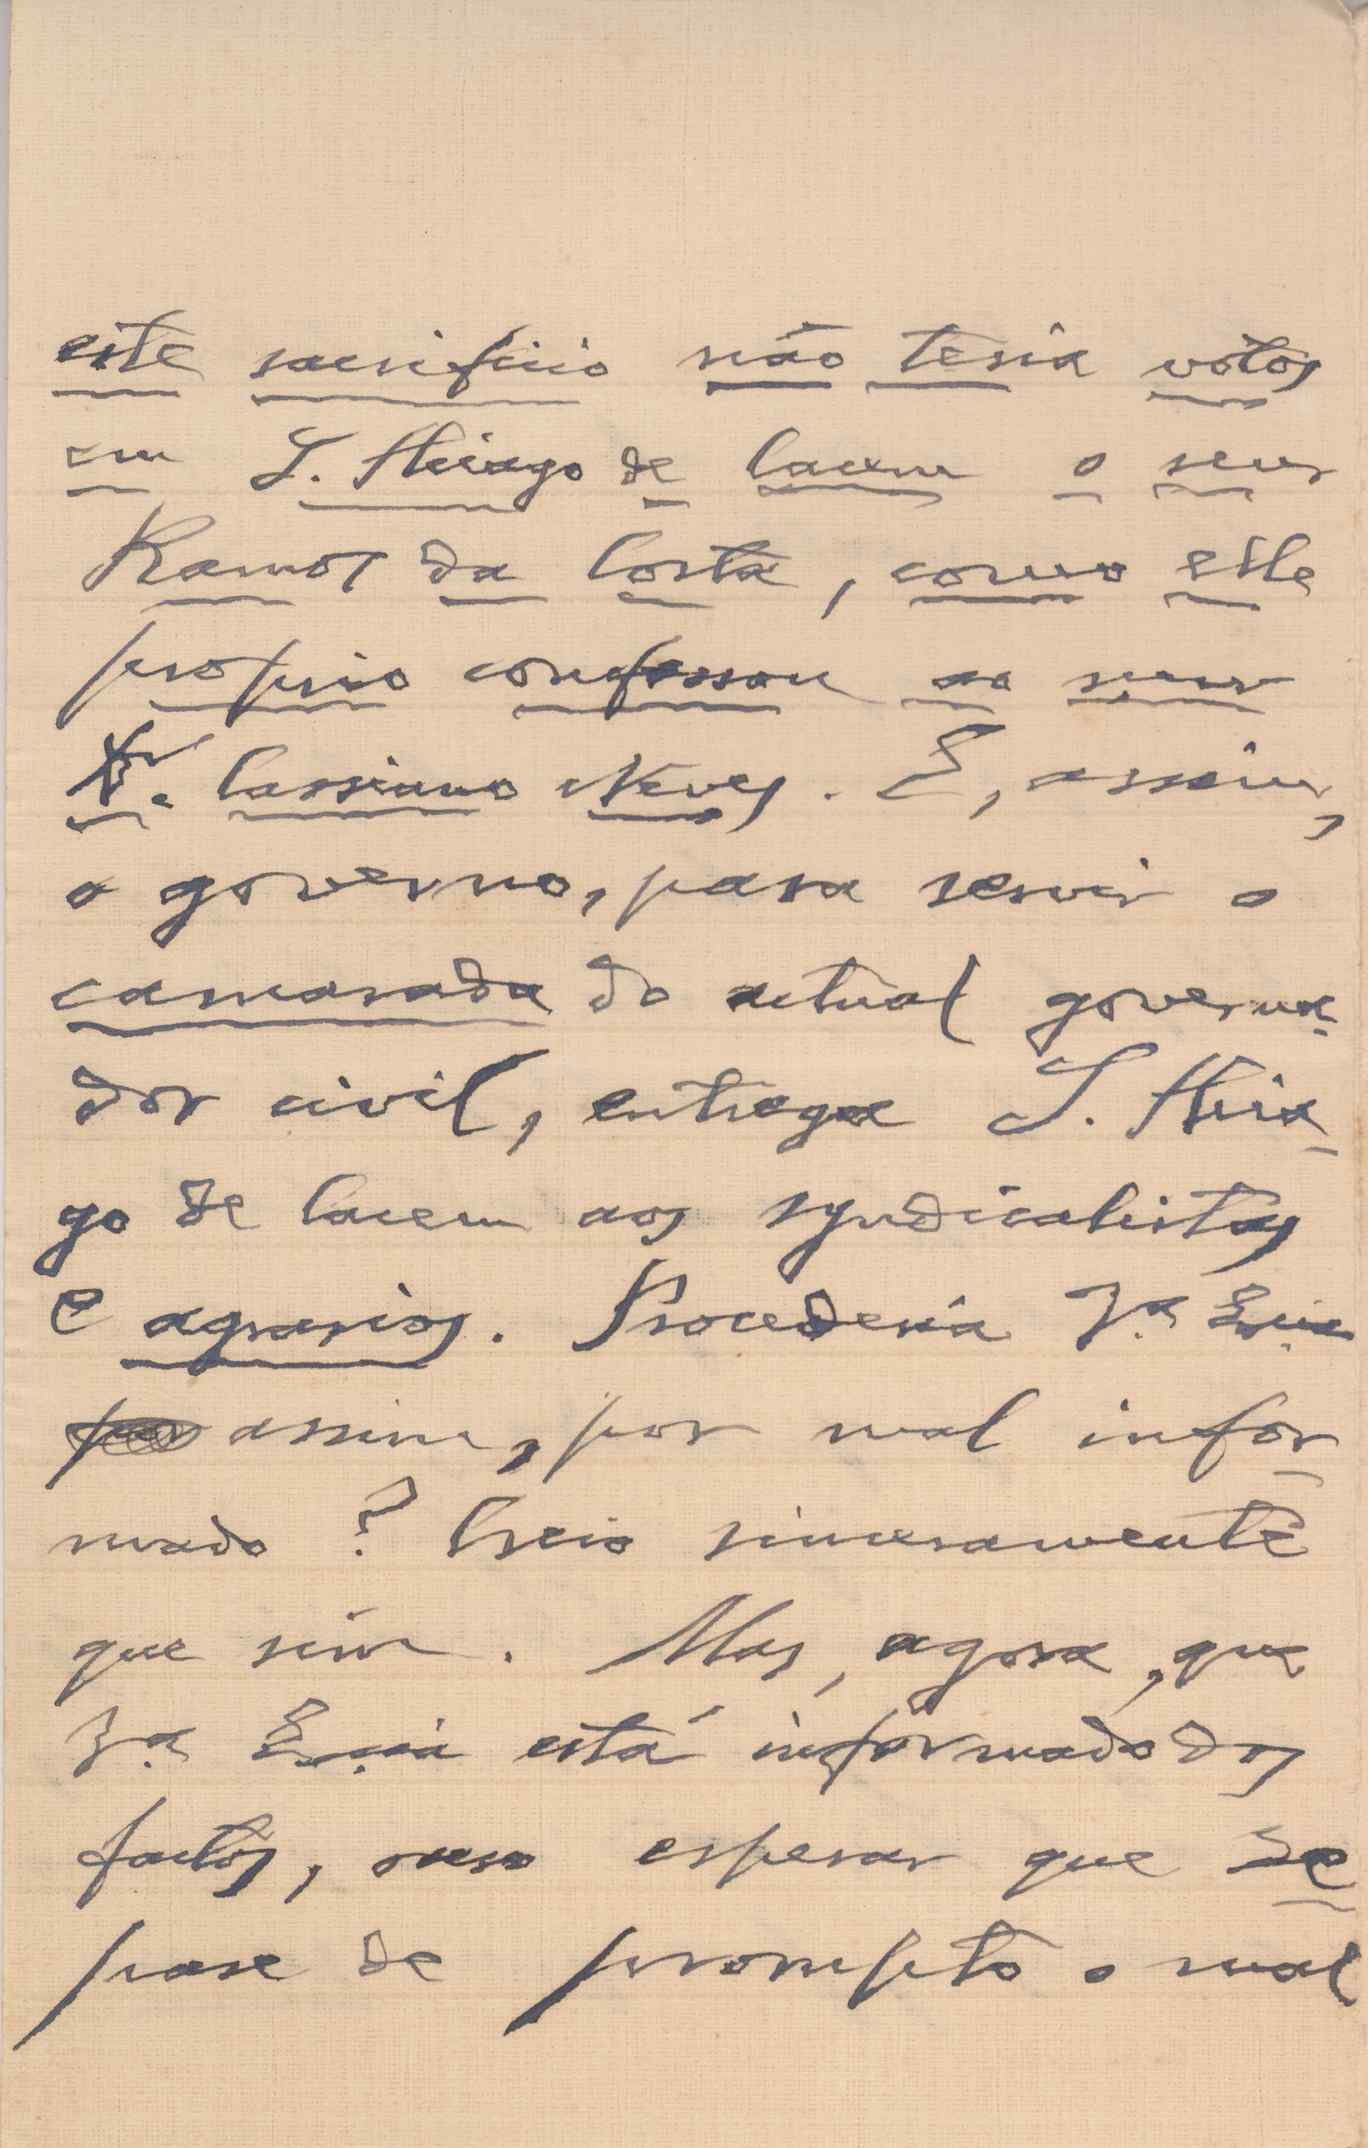 este sacrificio não teria votos
em S. Thiago de Cacem o seu
Ramos da Costa, como elle
proprio confessou ao seu
Dr. Cassiano Neves. E, assim,
o governo, para servir o
camarada do actual governa-
dor civil, entrega S. Thia-
go de Cacem aos syndicalistas
e agrarios. Procederia V.ª Ex.cia
assim, por mal infor-
mado? Creio sinceramente
que sim. Mas, agora, que
V.ª Ex.cia está informado dos
factos, ouso esperar que re-
pare de prompto o mal